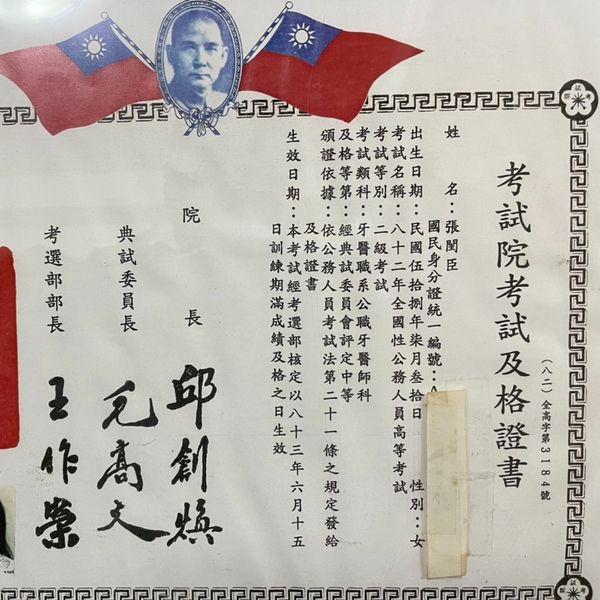 考試院考試及格證書
(八二)全高字第3184號
姓名：張閔臣
國民身分證統一編號：A
出生日期：民國伍拾捌年柒月叁拾日 性別：女
考試名稱：八十二年全國性公務人員高等考試
考試等別：二級考試
考試類科：牙醫職系公職牙醫師科
及格等第：經典試委員會評定中等
頒證依據：依公務人員考試法第二十一條之規定發給
及格證書
生效日期：本考試經考選部核定以八十三年六月十五
日訓練期滿成績及格之日生效
院長 邱創煥
典試委員長 毛高文
考選部部長 王作榮